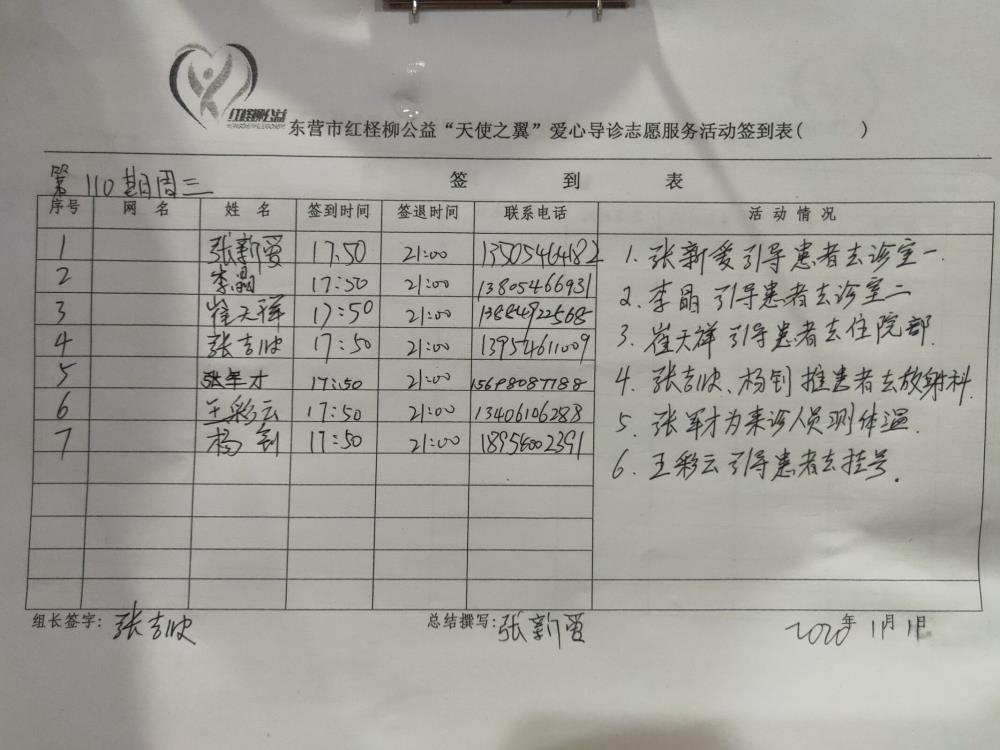 红柽柳公益
东营市红柽柳公益“天使之翼”爱心导诊志愿服务活动签到表(　　)
第110期周三
签 到 表
序号 网名 姓名 签到时间 签退时间 联系电话 活动情况
1 张新爱 17:50 21:00 13505464682
2 李晶 17:50 21:00 13805466931
3 崔天祥 17:50 21:00 13884922568
4 张吉收 17:50 21:00 13954611009
5 张军才 17:50 21:00 15698087188
6 王彩云 17:50 21:00 13406106288
7 杨钊 17:50 21:00 18954002391
1. 张新爱引导患者去诊室一.
2. 李晶引导患者去诊室二
3. 崔天祥引导患者去住院部.
4. 张吉收、杨钊推患者去放射科.
5. 张军才为来诊人员测体温.
6. 王彩云引导患者去挂号.
组长签字: 张吉收
总结撰写: 张新爱
2020年11月11日